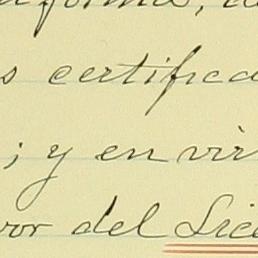 nforma, d
s certifica
; y en vir
vor del Lice